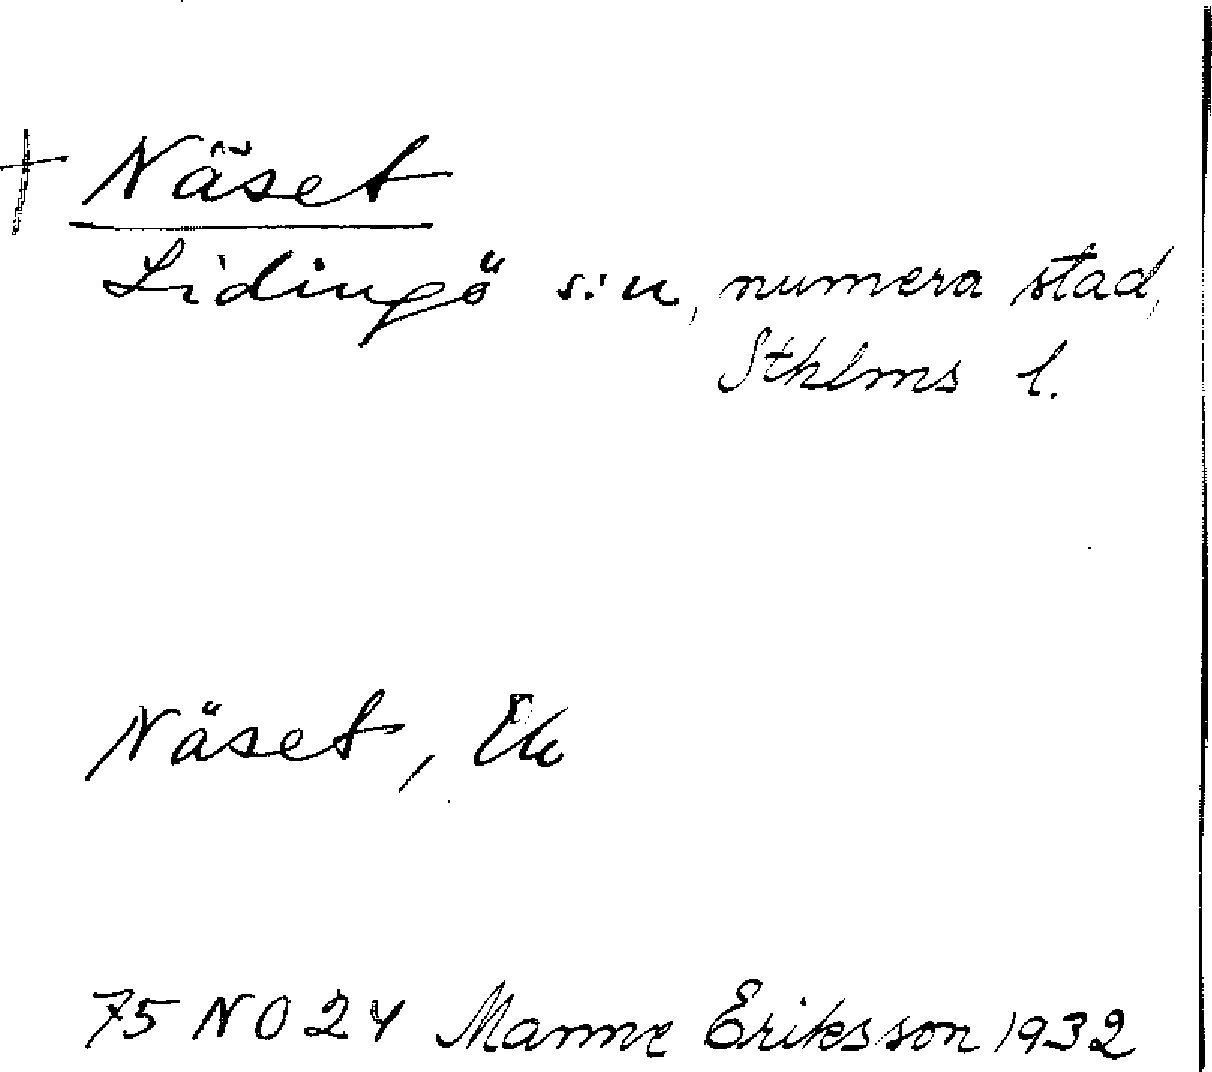 + Näset
Lidingö s:n, numera stad,
Sthlms l.
Näset, Ek
75 NO 24 Manne Eriksson 1932